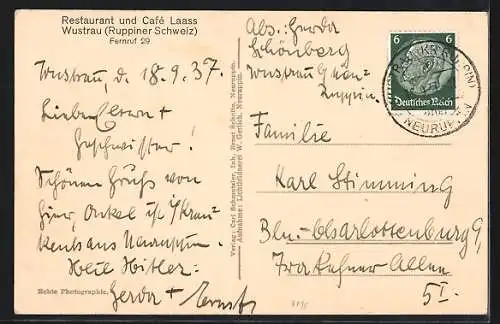 Restaurant und Café Laass
Wustrau (Ruppiner Schweiz)
Fernruf 29
Wustrau, d. 18.9.37.
Liebe Eltern +
Geschwister!
Schönen Gruß von
hier, Onkel ist i/Kran-
kenhaus Neuruppin.
Heil Hitler
Gerda + Ernst
Echte Photographie.
Verlag: Carl Schmutzler, Inh. Ernst Schütte, Neuruppin.
Aufnahme: Lichtbildnerei W. Gerlich, Neuruppin.
Abs: Gerda
Schönberg
Wustrau
Ruppin.
6 6
Deutsches Reich
NEURUPPIN
Familie
Karl Stimming
Bln.-Charlottenburg 9,
Allee
5I.